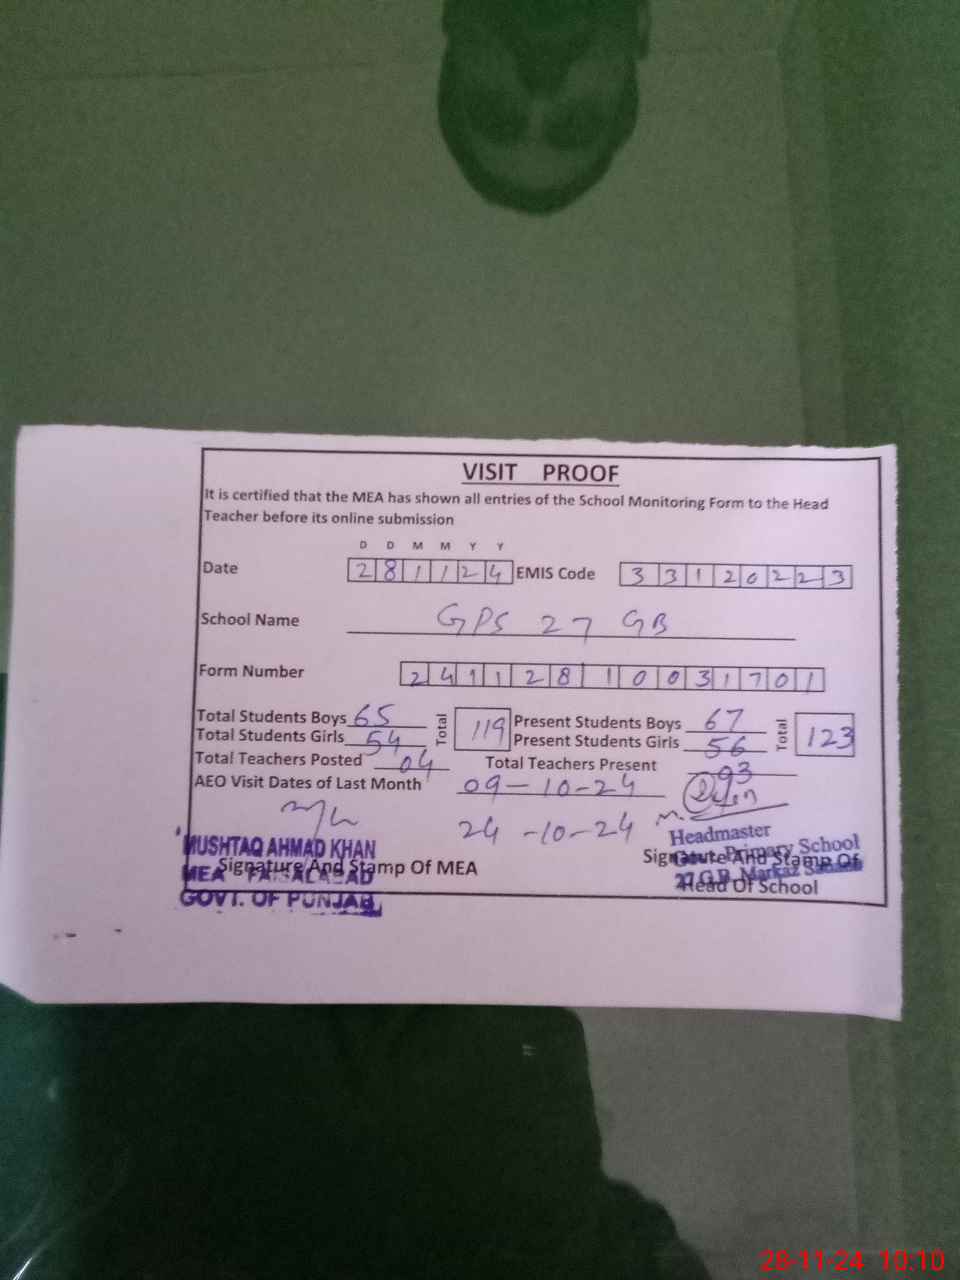 VISIT PROOF
It is certified that the MEA has shown all entries of the School Monitoring Form to the Head
Teacher before its online submission
D D M M Y Y
Date 281124 EMIS Code 33120223
School Name GPS 27 GB
Form Number 24112810031701
Total Students Boys 65 Total 119 Present Students Boys 67 Total 123
Total Students Girls 54 Present Students Girls 56
Total Teachers Posted 04 Total Teachers Present 03
AEO Visit Dates of Last Month 09-10-24
24-10-24
MUSHTAQ AHMAD KHAN
MEA FAISALABAD
GOVT. OF PUNJAB
Signature And Stamp Of MEA
Headmaster
Govt. Primary School
27 G.B. Markaz
Signature And Stamp Of
Head Of School
28-11-24 10:10